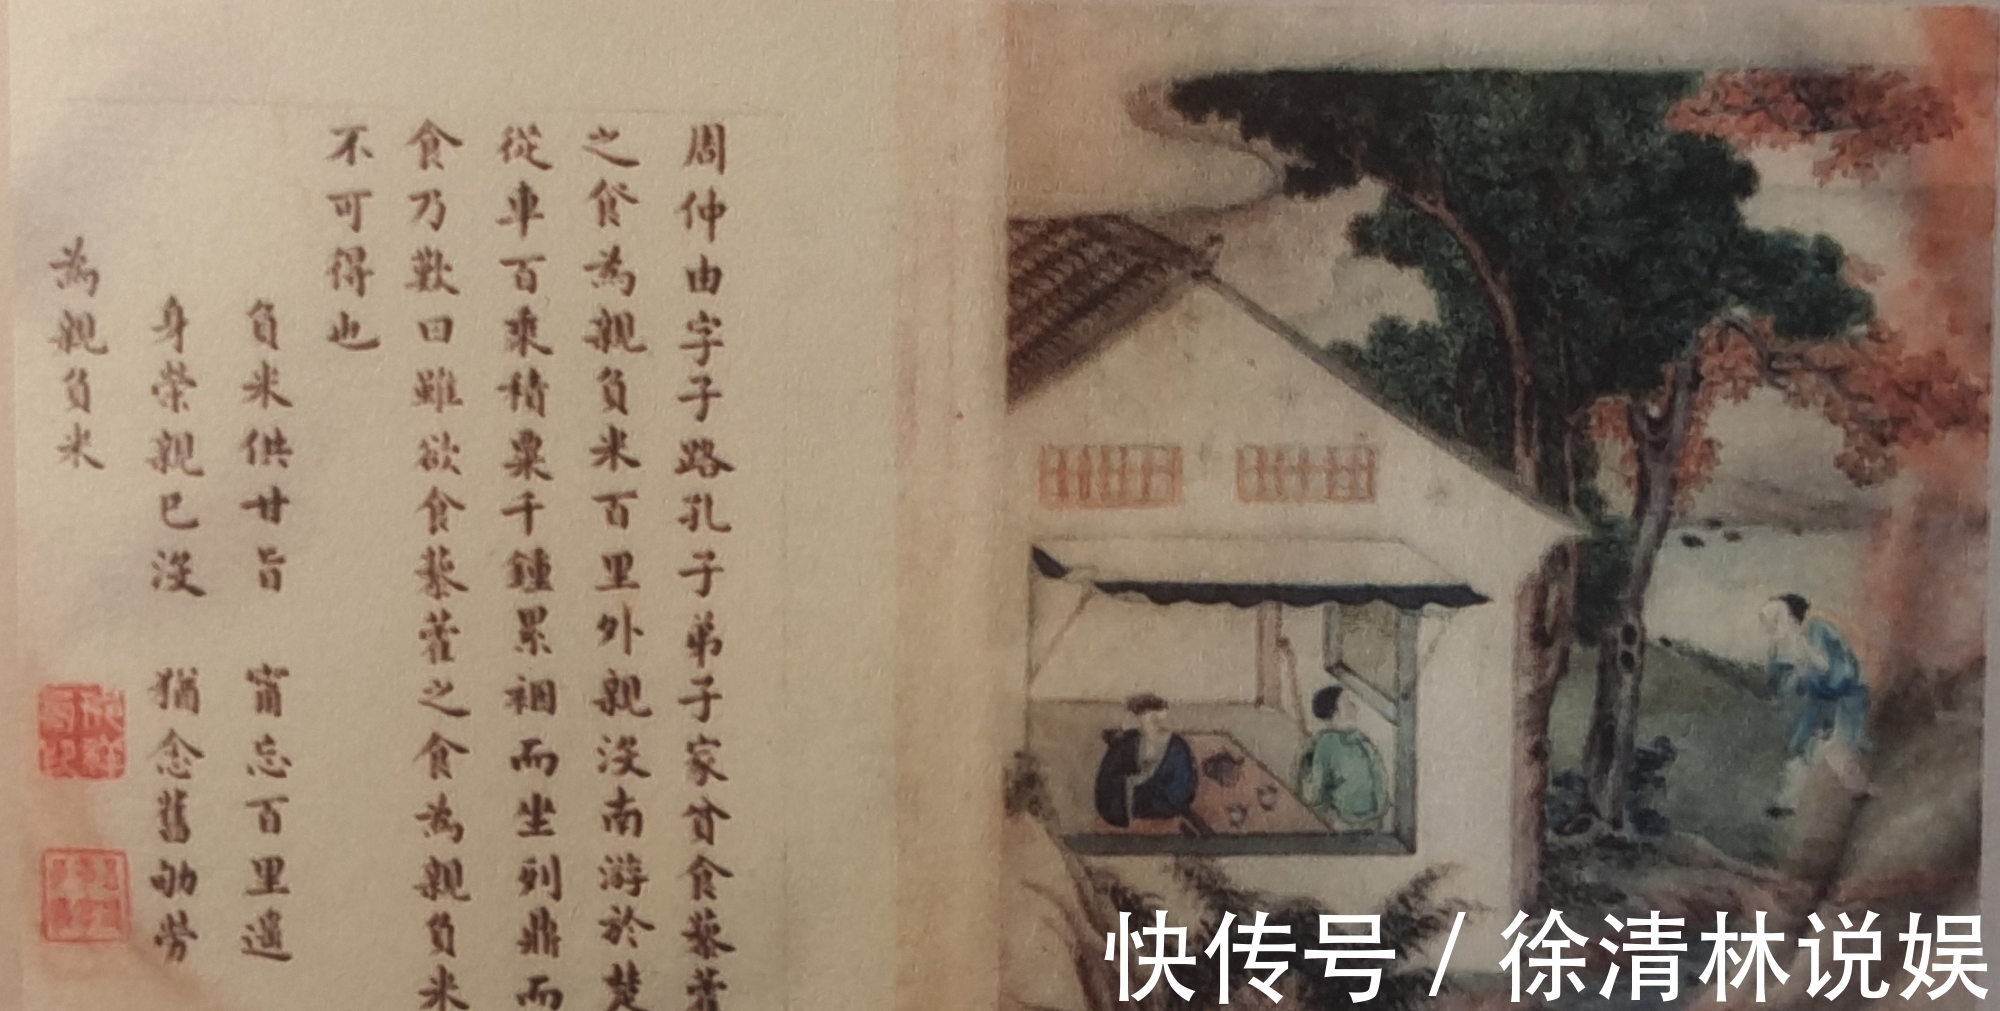 周仲由字子路孔子弟子家貧食藜藿
之食為親負米百里外親沒南游於楚
從車百乘積粟千鍾累裀而坐列鼎而
食乃歎曰雖欲食藜藿之食為親負米
不可得也
負米供甘旨 甯忘百里遥
身榮親已沒 猶念舊劬勞
為親負米
快传号/徐清林说娱